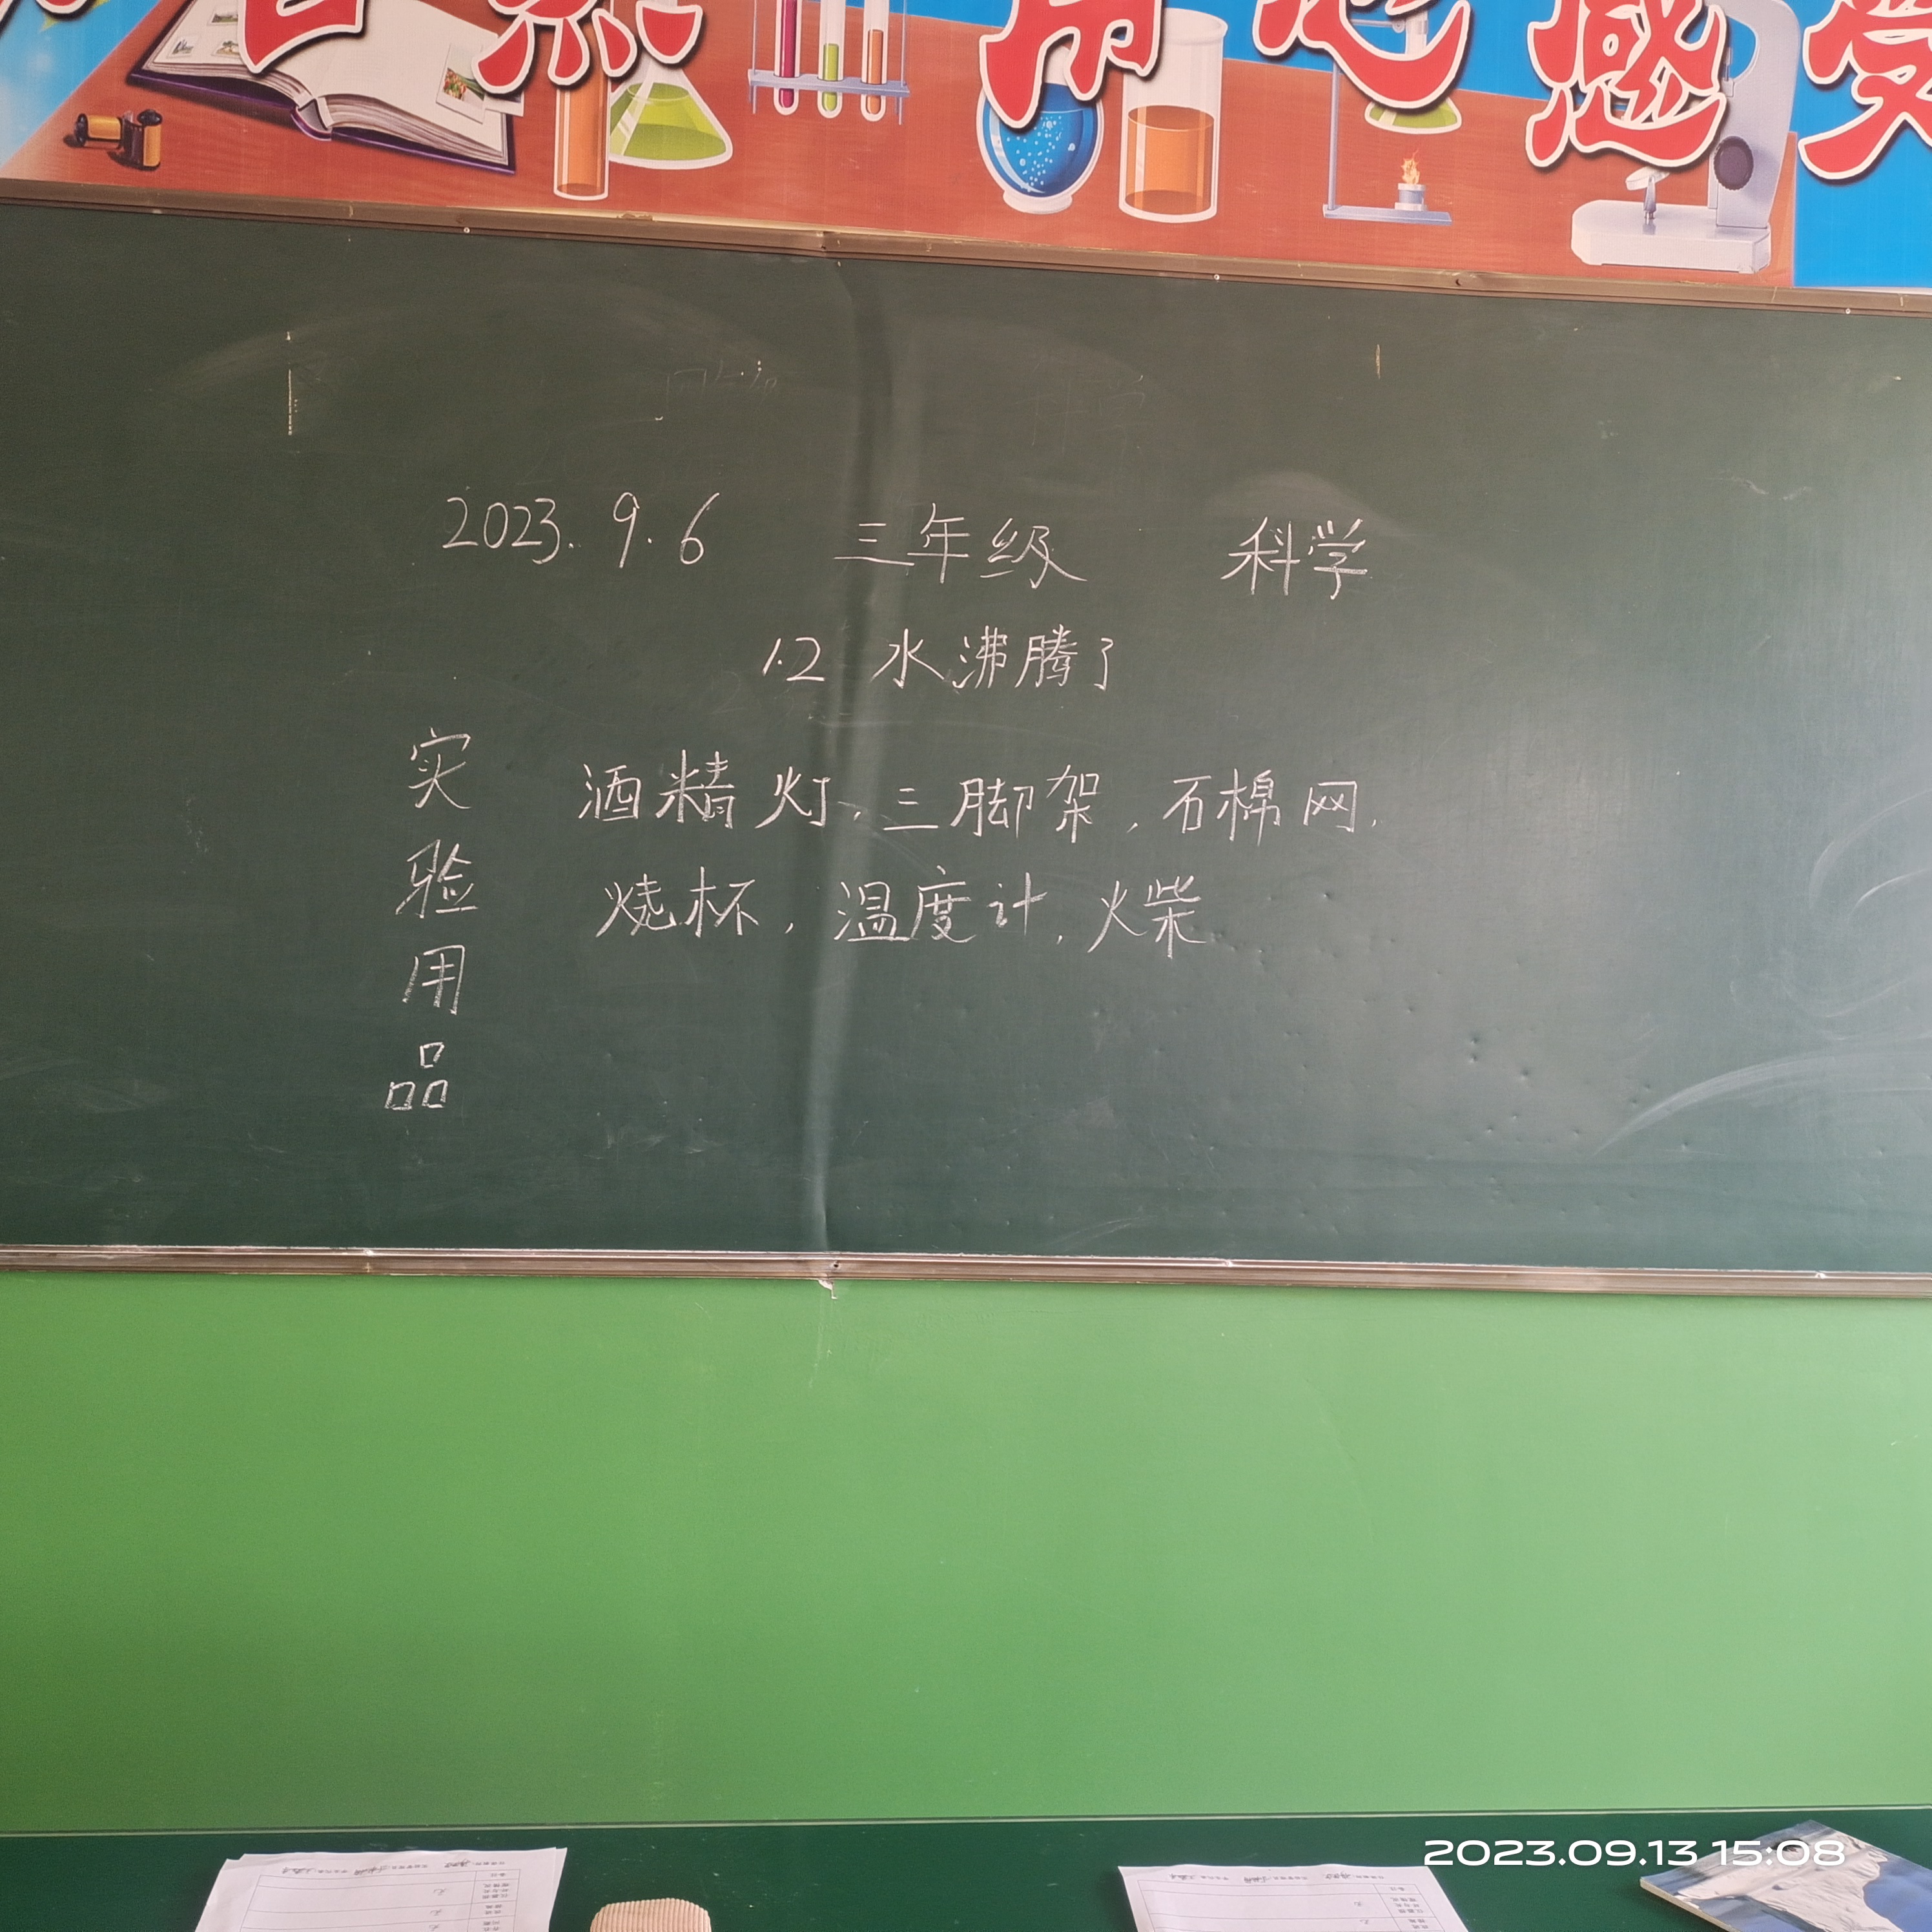 用心感受
2023.9.6 三年级 科学
1.2 水沸腾了
实验用品
酒精灯,三脚架,石棉网,
烧杯,温度计,火柴
2023.09.13 15:08